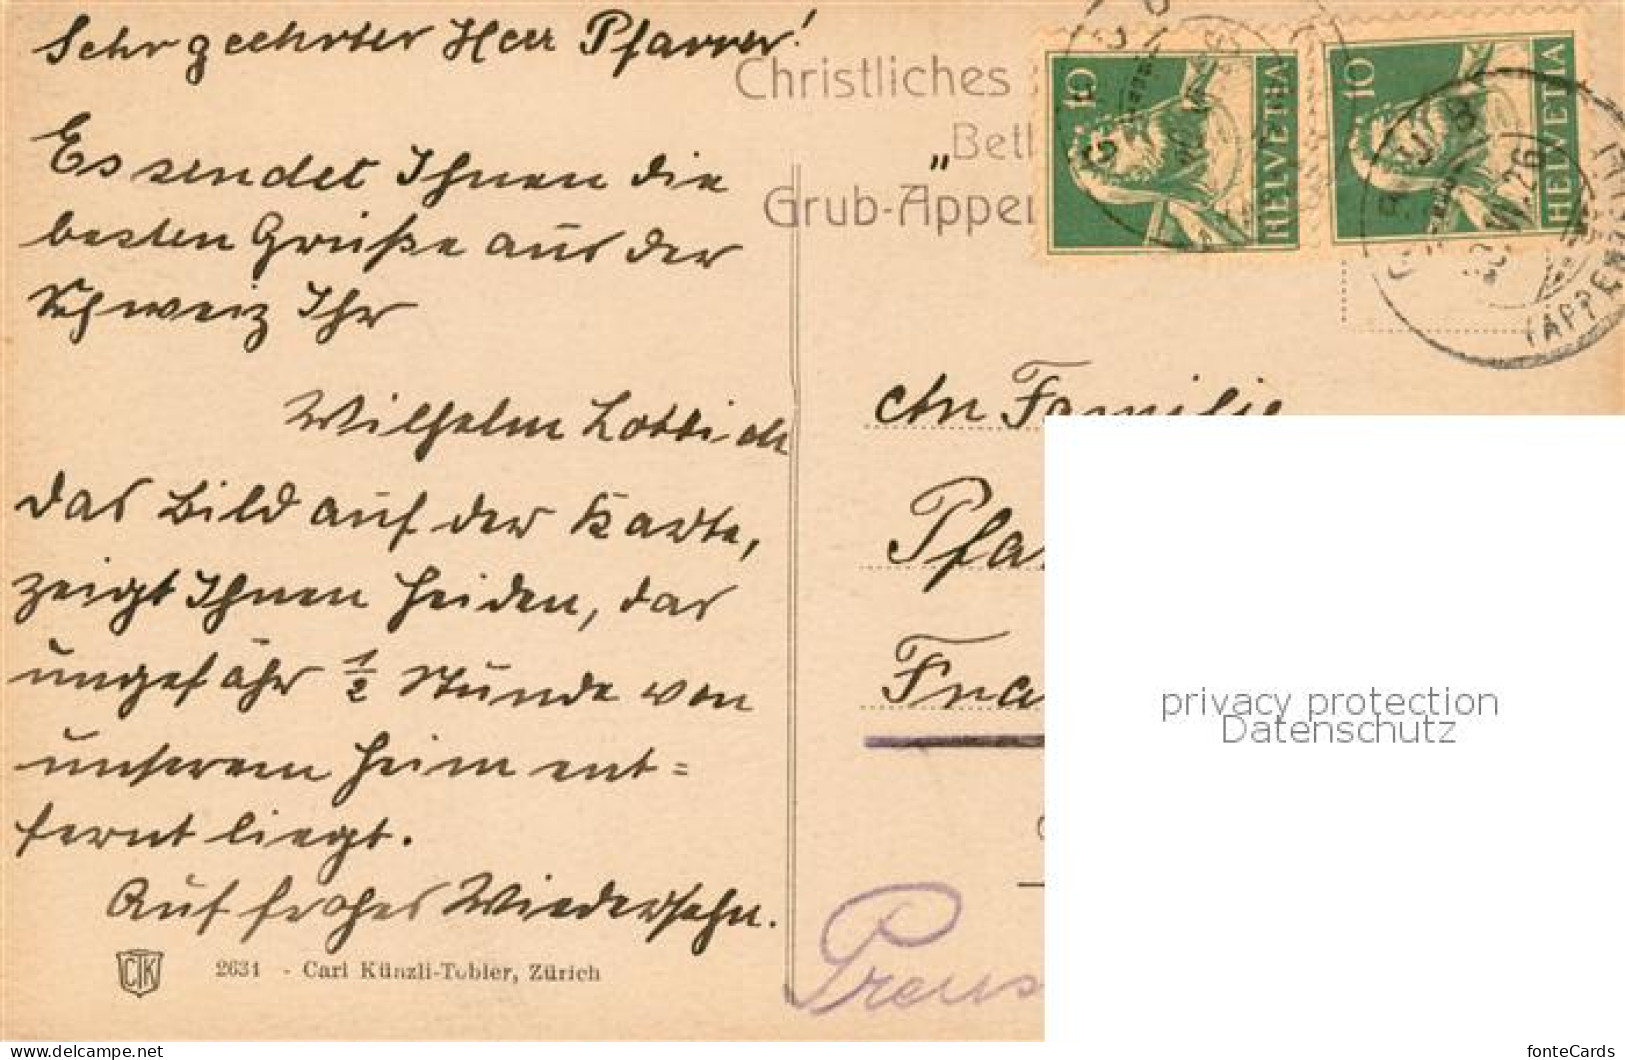 Sehr geehrter Herr Pfarrer!
Es sendet Ihnen die
besten Grüße aus der
Schweiz Ihr
Wilhelm
das Bild auf der Karte,
zeigt Ihnen Heiden, das
ungefähr 1/2 Stunde von
unserem Heim ent=
fernt liegt.
Auf frohes Wiedersehn.
CTK
2631 - Carl Künzli-Tobler, Zürich
Christliches
„Betl
Grub-Appen
10 HELVETIA
10 HELVETIA
GRUB
(APPENZELL
VII.26
An Familie
Pfa
Preus
privacy protection
Datenschutz
www.delcampe.net
fonteCards